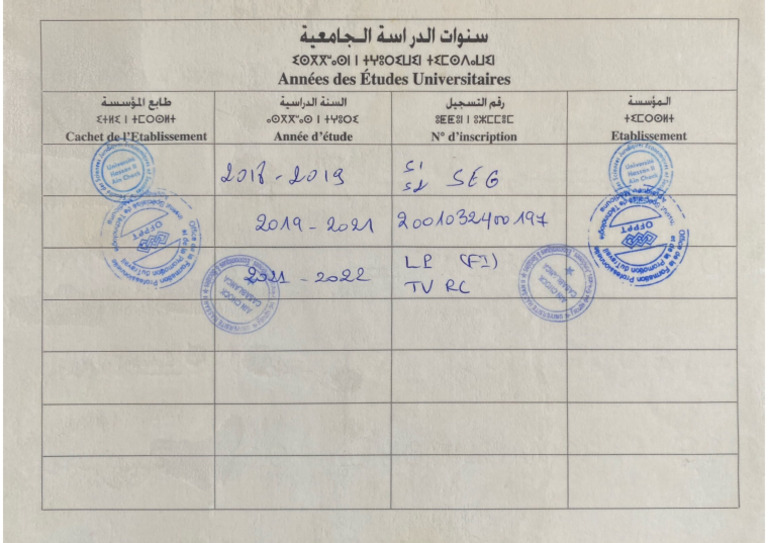 سنوات الدراسة الجامعية
Années des Études Universitaires
طابع المؤسسة السنة الدراسية رقم التسجيل المؤسسة
Cachet de l'Etablissement Année d'étude N° d'inscription Etablissement
Université Hassan II Ain Chock
2018 - 2019
S1 S2 SEG
Université Hassan II Ain Chock
OFPPT
2019 - 2021
2001032400197
OFPPT
Office de la Formation Professionnelle et de la Promotion du Travail
2021 - 2022
LP (FI)
TV RC
AIN CHOCK CASABLANCA
AIN CHOCK CASABLANCA